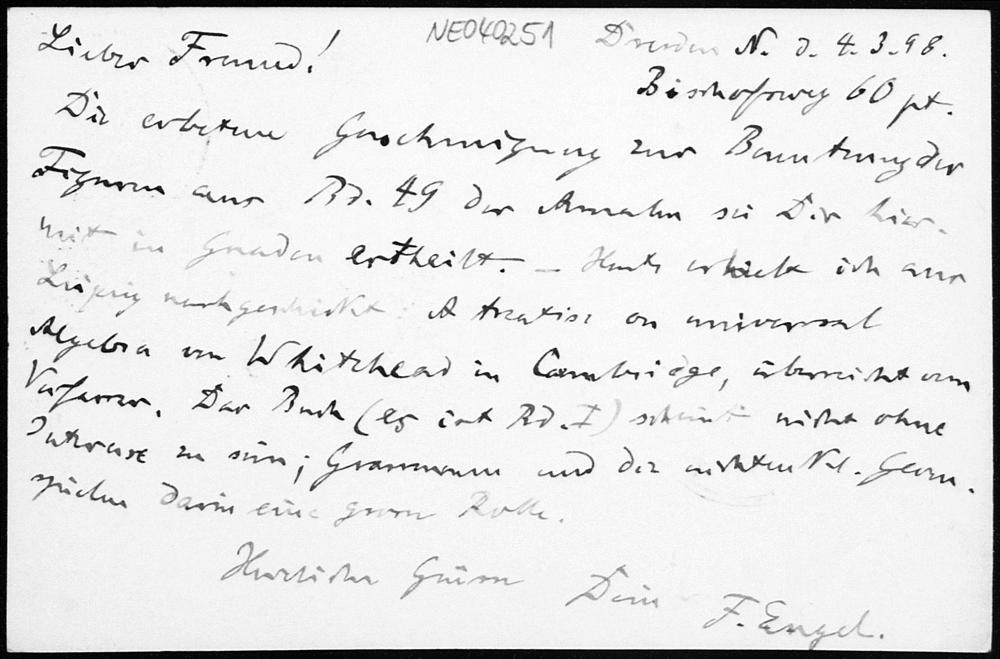 NE040251
Dresden N. d. 4.3.98.
Bischofsweg 60 pt.
Lieber Freund!
Die erbetene Genehmigung zur Benutzung der
Figuren aus Bd. 49 der Annalen sei Dir hier-
mit in Gnaden ertheilt. — Heute erhielt ich aus
Leipzig nachgeschickt: A treatise on universal
Algebra von Whitehead in Cambridge, überreicht vom
Verfasser. Das Buch (es ist Bd. I) scheint nicht ohne
Interesse zu sein; Grassmann und die nichteukl. Geom.
spielen darin eine grosse Rolle.
Herzliche Grüsse Dein F. Engel.